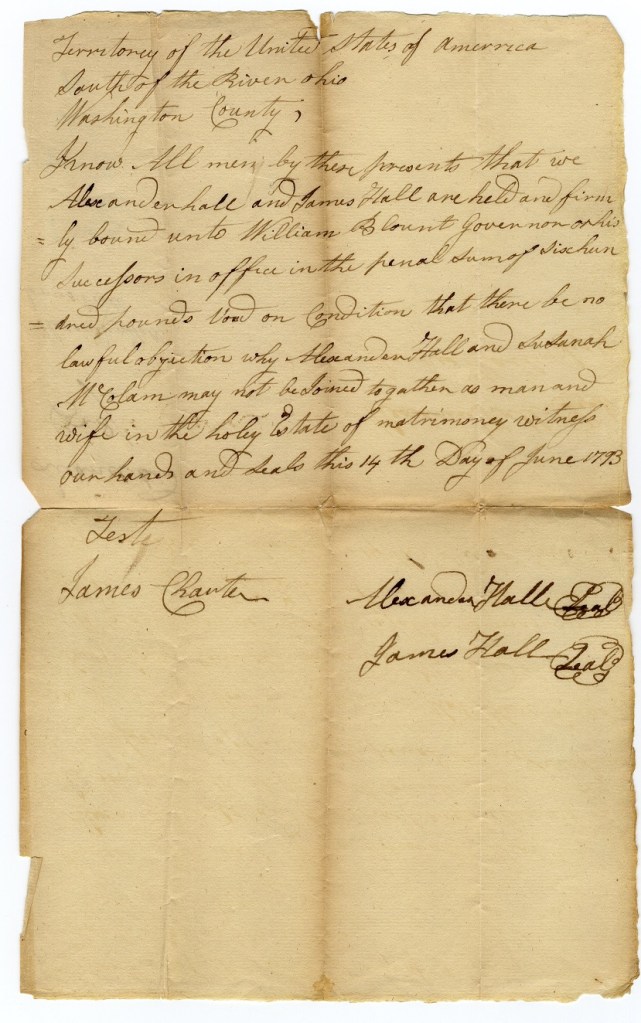 Territorey of the United States of amerrica
South of the River ohio
Washington County,
Know All men by these presents that we
Alexander hall and James Hall are held and firm
= ly bound unto William Blount Governor or his
Successors in office in the penal Sum of Sixhun
= dred pounds Void on Condition that there be no
lawful objection why Alexander Hall and Susanah
McClam may not be Joined togather as man and
wife in the holey Estate of matrimoney witness
our hands and Seals this 14th Day of June 1793
Teste
James Charter
Alexander Hall Seal
James Hall Seal